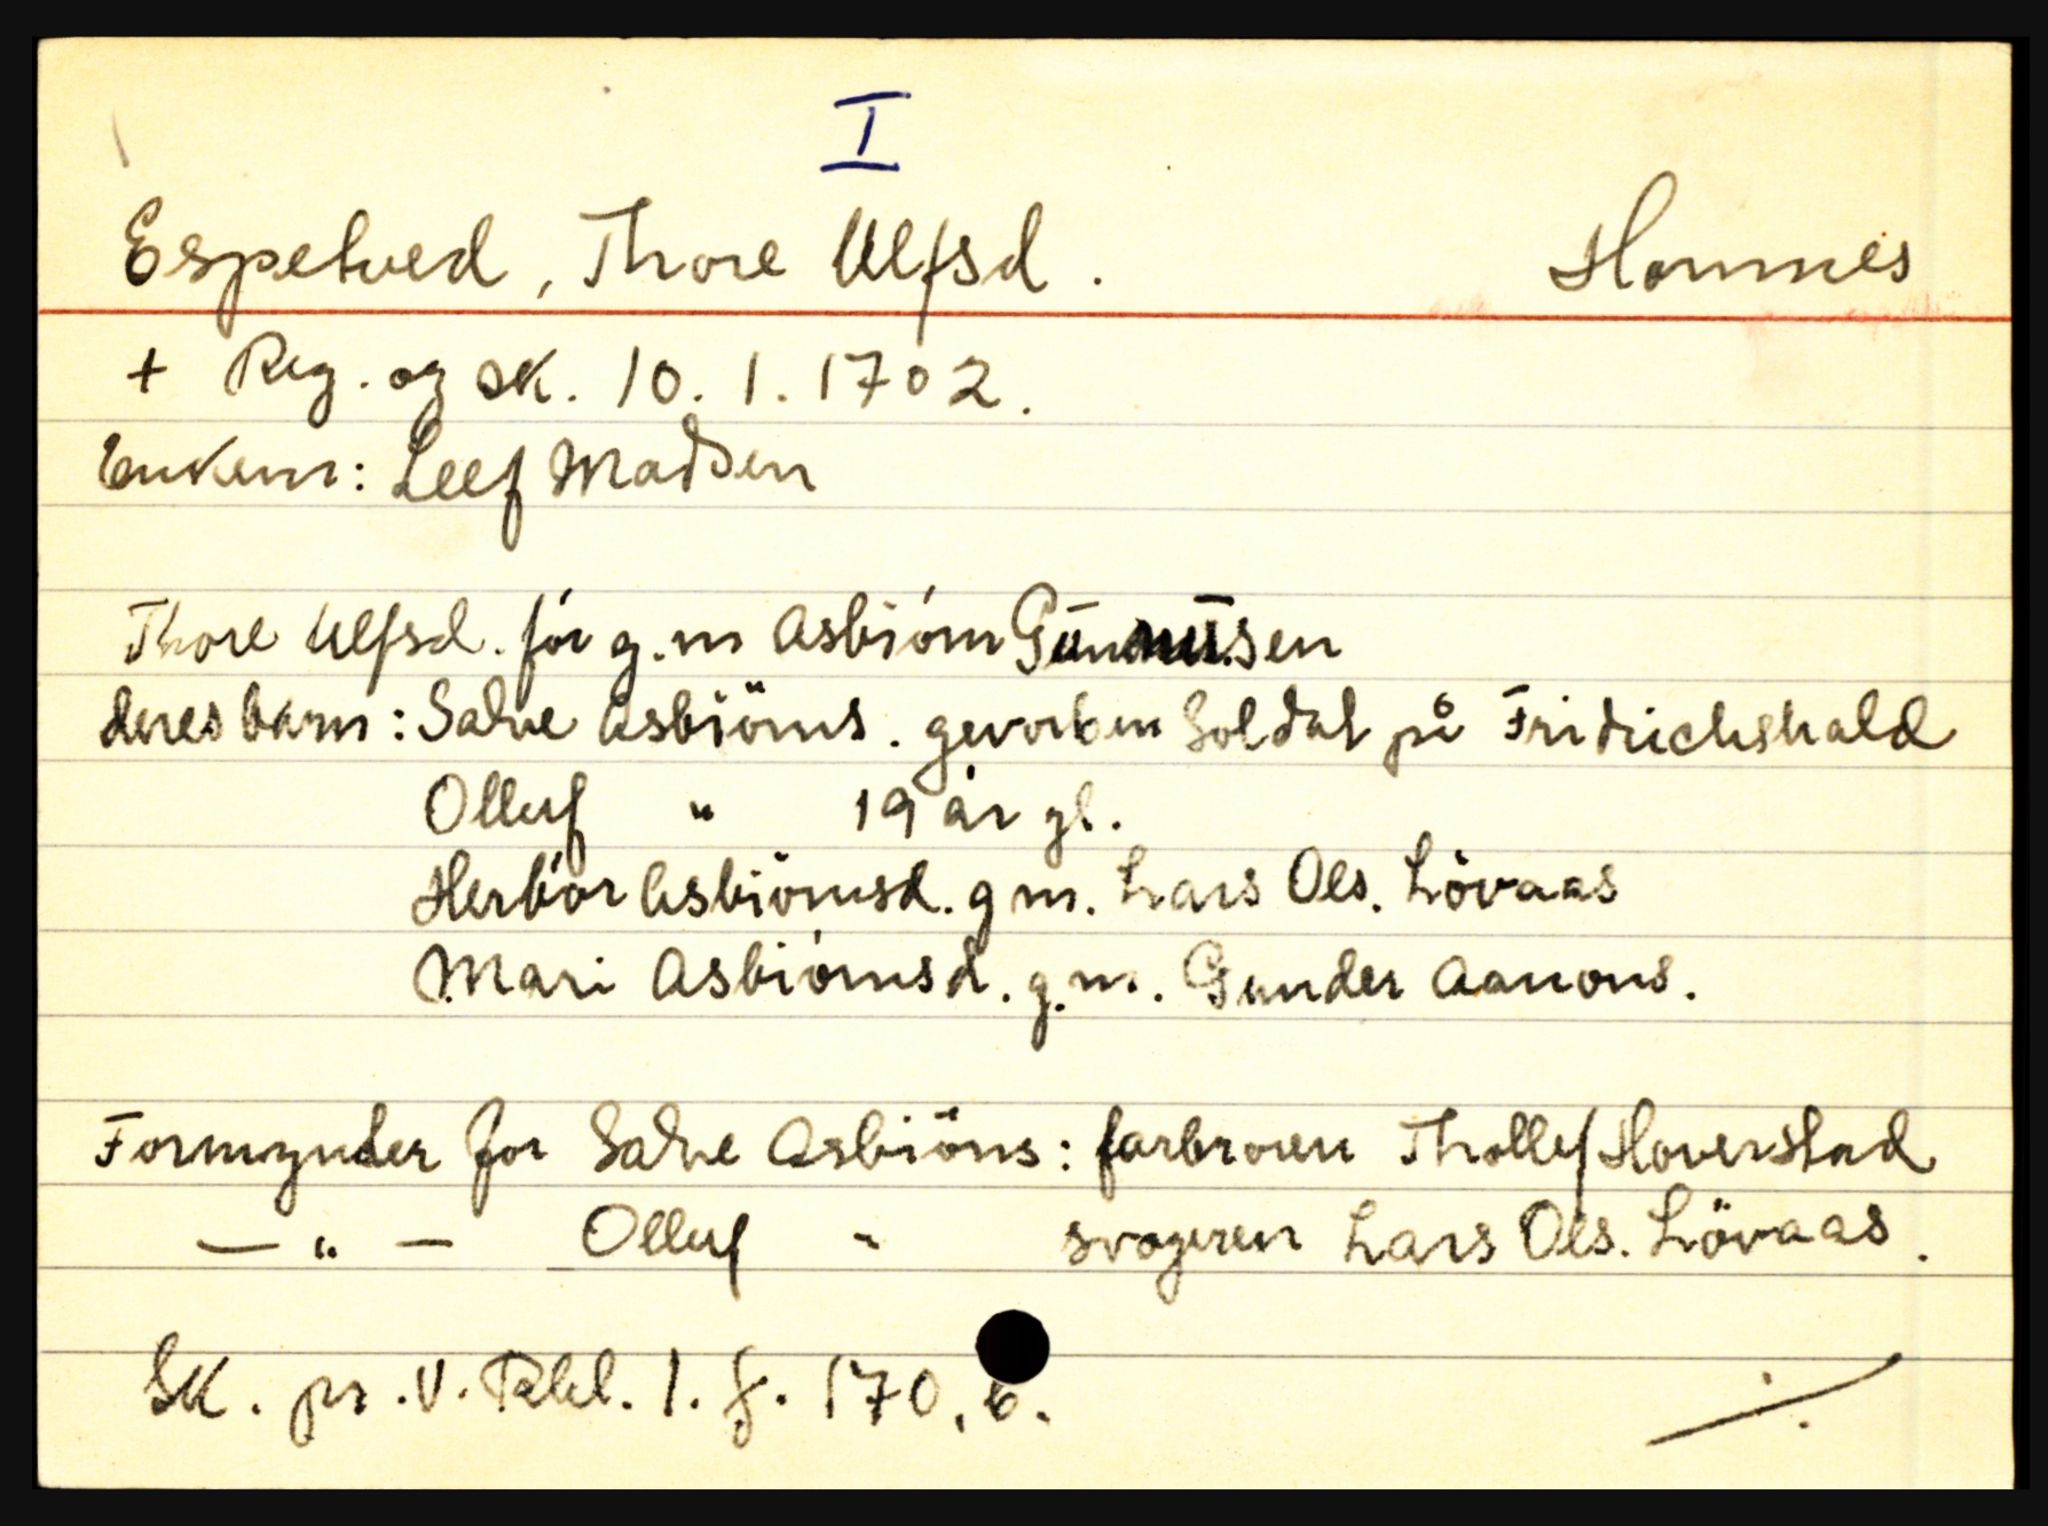 I
Espetved, Thore Ulfsd. Hommes
+ Reg. og sk. 10. 1. 1702.
Enkem: Leef Madsen
Thore Ulfsd. för g.m Asbiörn
deres barn: Salve Asbiörns. gevorben Soldat på Fridrichshald
Olluf " 19 år gl.
Herbor Asbiörnsd. g m. Lars Ols. Lövaas
Mari Asbiörnsd. g.m. Gunder Aanons.
Formynder for Salve Asbiöns: farbroren Thollef Haverstad
— " — Olluf " svogeren Lars Ols. Lövaas.
Sk. pr. V. Råbl. 1. f. 170, b.
./.